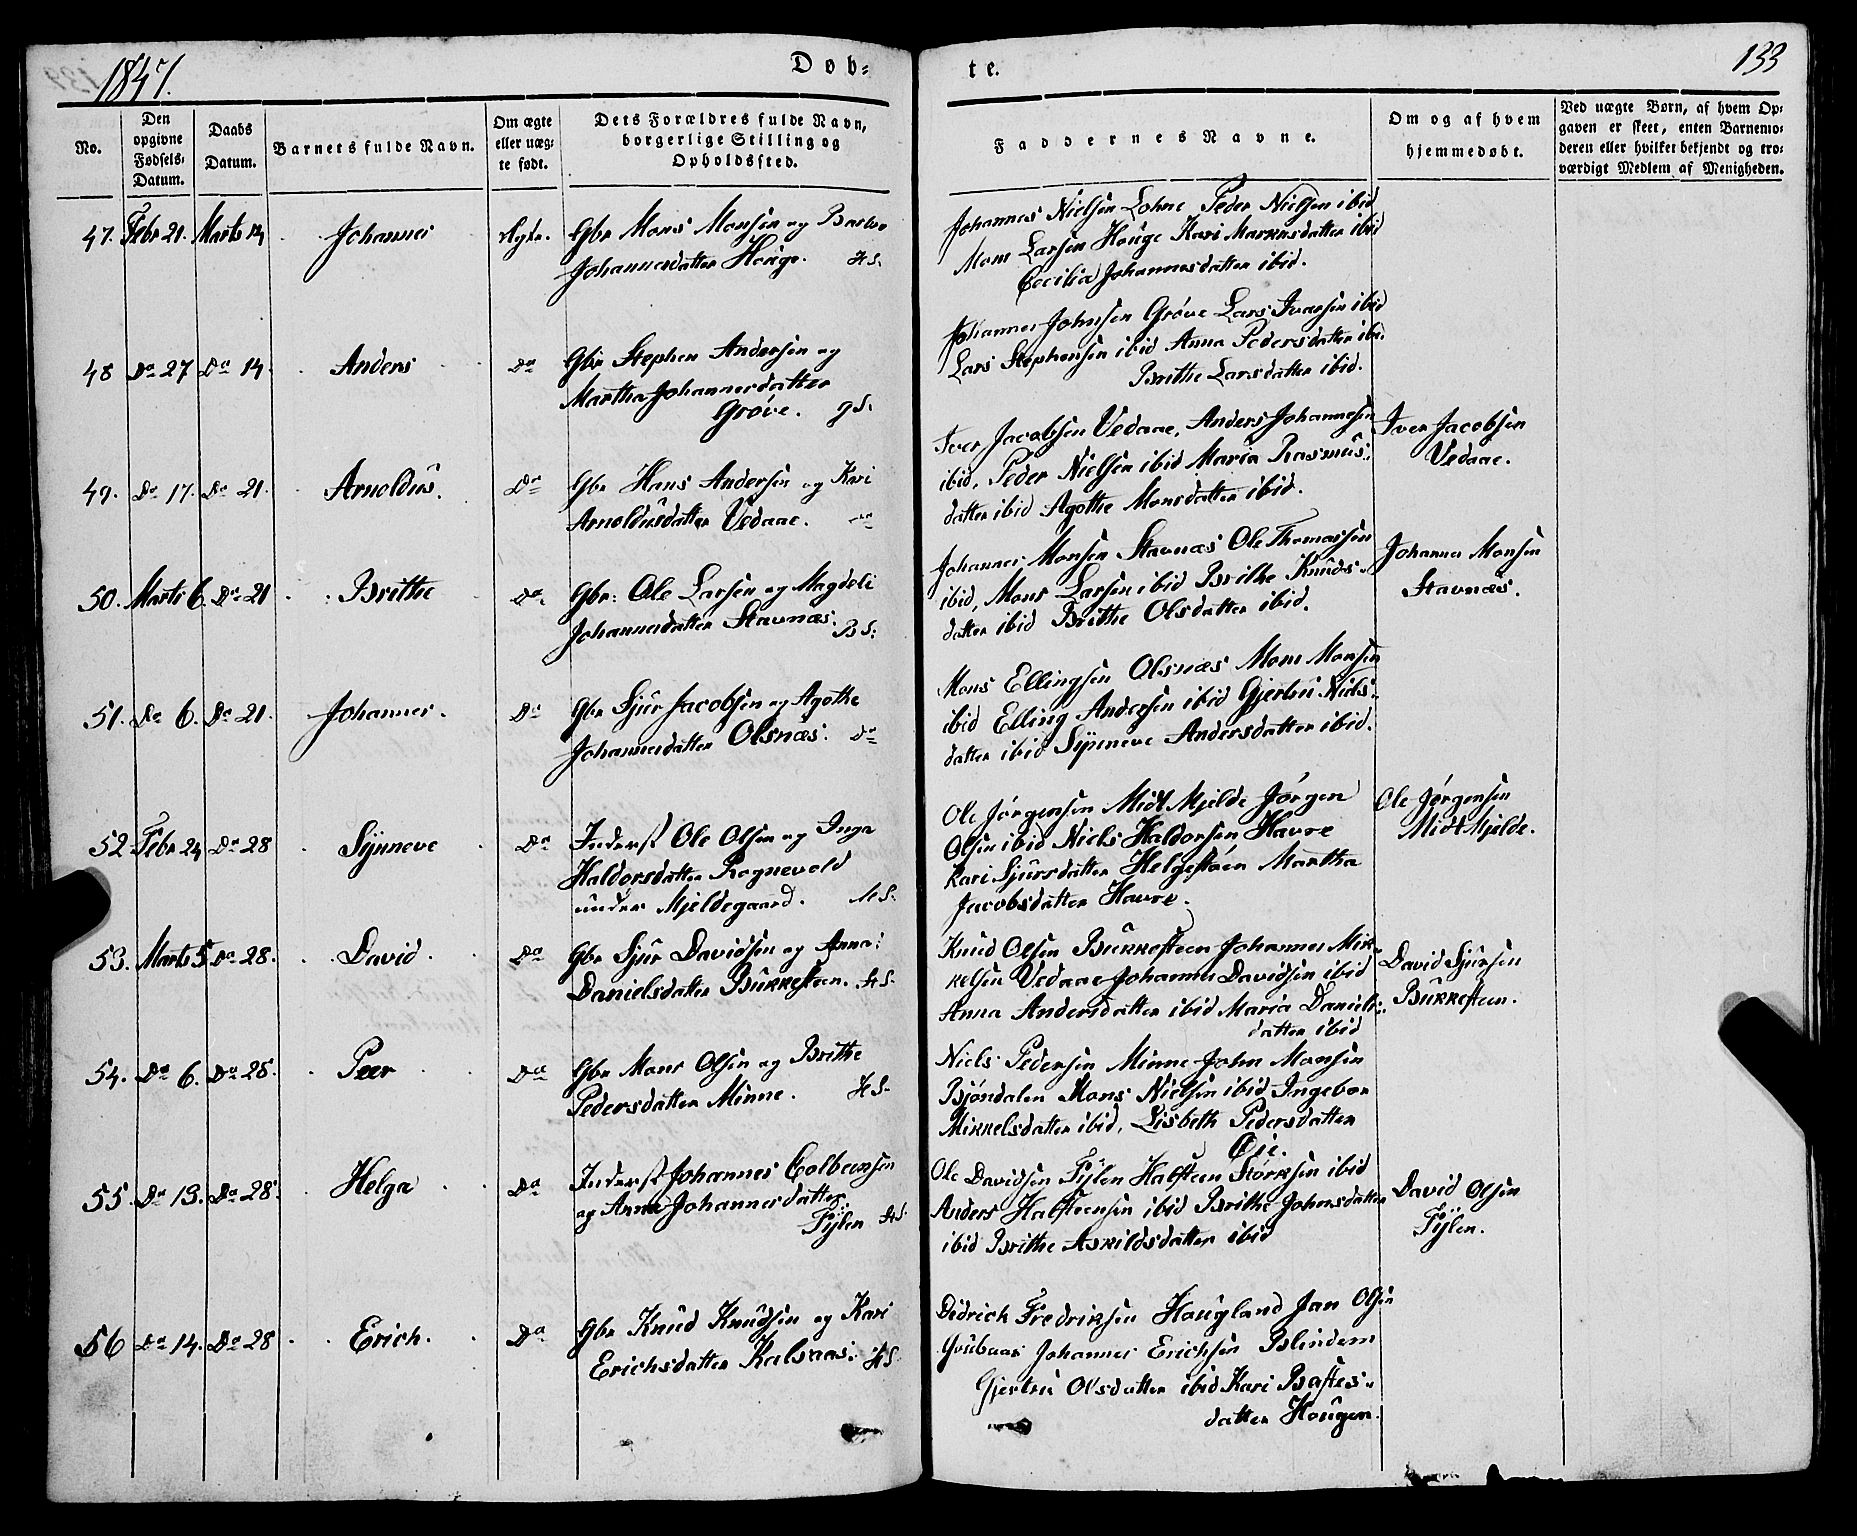 1847.
Døb-
te.
133
No.
Den opgivne Fødsels-Datum.
Daabs Datum.
Barnets fulde Navn.
Om ægte eller uæg-te født.
Dets Forældres fulde Navn, borgerlige Stilling og Opholdssted.
Faddernes Navne.
Om og af hvem hjemmedøbt.
Ved uægte Børn, af hvem Op-gaven er skeet, enten Barnemo-deren eller hvilket bekjendt og tro-værdigt Medlem af Menigheden.
47. Febr 21. Marts 14 Johannes Ægte. Gbr Mons Monsen og Barbro
Johannesdatter Houge. HS.
Johannes Nielsen Lohne Peder Nielsen ibid
Mons Larsen Houge Kari Markusdatter ibid
Cecilia Johannesdatter ibid.
48 Do 27 Do 14. Anders Do Gbr Stephen Andersen og
Martha Johannesdatter
Grøve. gS.
Johannes Johnsen Grøve Lars Ivarsen ibid
Lars Stephensen ibid Anna Pedersdatter ibi.
Brithe Larsdatter ibid.
49. Do 17. Do 21. Arnoldus. Do Gbr Hans Andersen og Kari
Arnoldusdatter Vedaae. Do
Iver Jacobsen Vedaae, Anders Johannesen
ibid, Peder Nielsen ibid Maria Rasmus-
datter ibid Agothe Monsdatter ibid.
Iver Jacobsen
Vedaae.
50. Marts 6. Do 21 Brithe Do. Gbr: Ole Larsen og Magdeli
Johannesdatter Stavnæs. BS:
Johannes Monsen Stavnæs Ole Thomassen
ibid, Mons Larsen ibid Brithe Knuds-
datter ibid Brithe Olsdatter ibid.
Johannes Monsen
Stavnæs.
51. Do 6. Do 21. Johannes. Do Gbr Sjur Jacobsen og Agothe
Johannesdatter Olsnæs. Do
Mons Ellingsen Olsnæs Mons Monsen
ibid Elling Andersen ibid Gjertru Niels-
datter ibid Synneve Andersdatter ibid.
52 Febr 24 Do 28 Synneve Do Inderst Ole Olsen og Inga
Haldorsdatter Rognevold
under Mjeldegaard. MS.
Ole Jørgensen Midt Mjelde Jørgen
Olsen ibid Niels Haldorsen Havre
Kari Sjursdatter Helgestøen Martha
Jacobsdatter Havre.
Ole Jørgensen
Midt Mjelde.
53. Marts 5 Do 28. David. Do Gbr Sjur Davidsen og Anna
Danielsdatter Bukkesteen. HS.
Knud Olsen Bukkesteen Johannes Mik-
kelsen Vedaae Johannes Davidsen ibid
Anna Andersdatter ibid Maria Daniels-
datter ibid
David Sjursen
Bukkesteen.
54. Do 6. Do 28. Peer Do Gbr Mons Olsen og Brithe
Pedersdatter Minne. HS.
Niels Pedersen Minne John Monsen
Bjøndalen Mons Nielsen ibid Ingebor
Mikkelsdatter ibid, Lisbeth Pedersdatter
Øie.
55. Do 13. Do 28. Helga Do Inderst Johannes Colbensen
og Anna Johannesdatter
Fÿlen HS.
Ole Davidsen Fÿlen Halsteen Størksen ibid
Anders Halsteensen ibid Brithe Johnsdatter
ibid Brithe Askildsdatter ibid
David Olsen
Fÿlen.
56 Do 14. Do 28 Erich. Do Gbr Knud Knudsen og Kari
Erichsdatter Kalsaas. HS.
Didrich Fredriksen Hougland Jan Olsen
Johannes Erichsen Blindem
Gjertru Olsdatter ibid Kari Bastes-
datter Hougen.